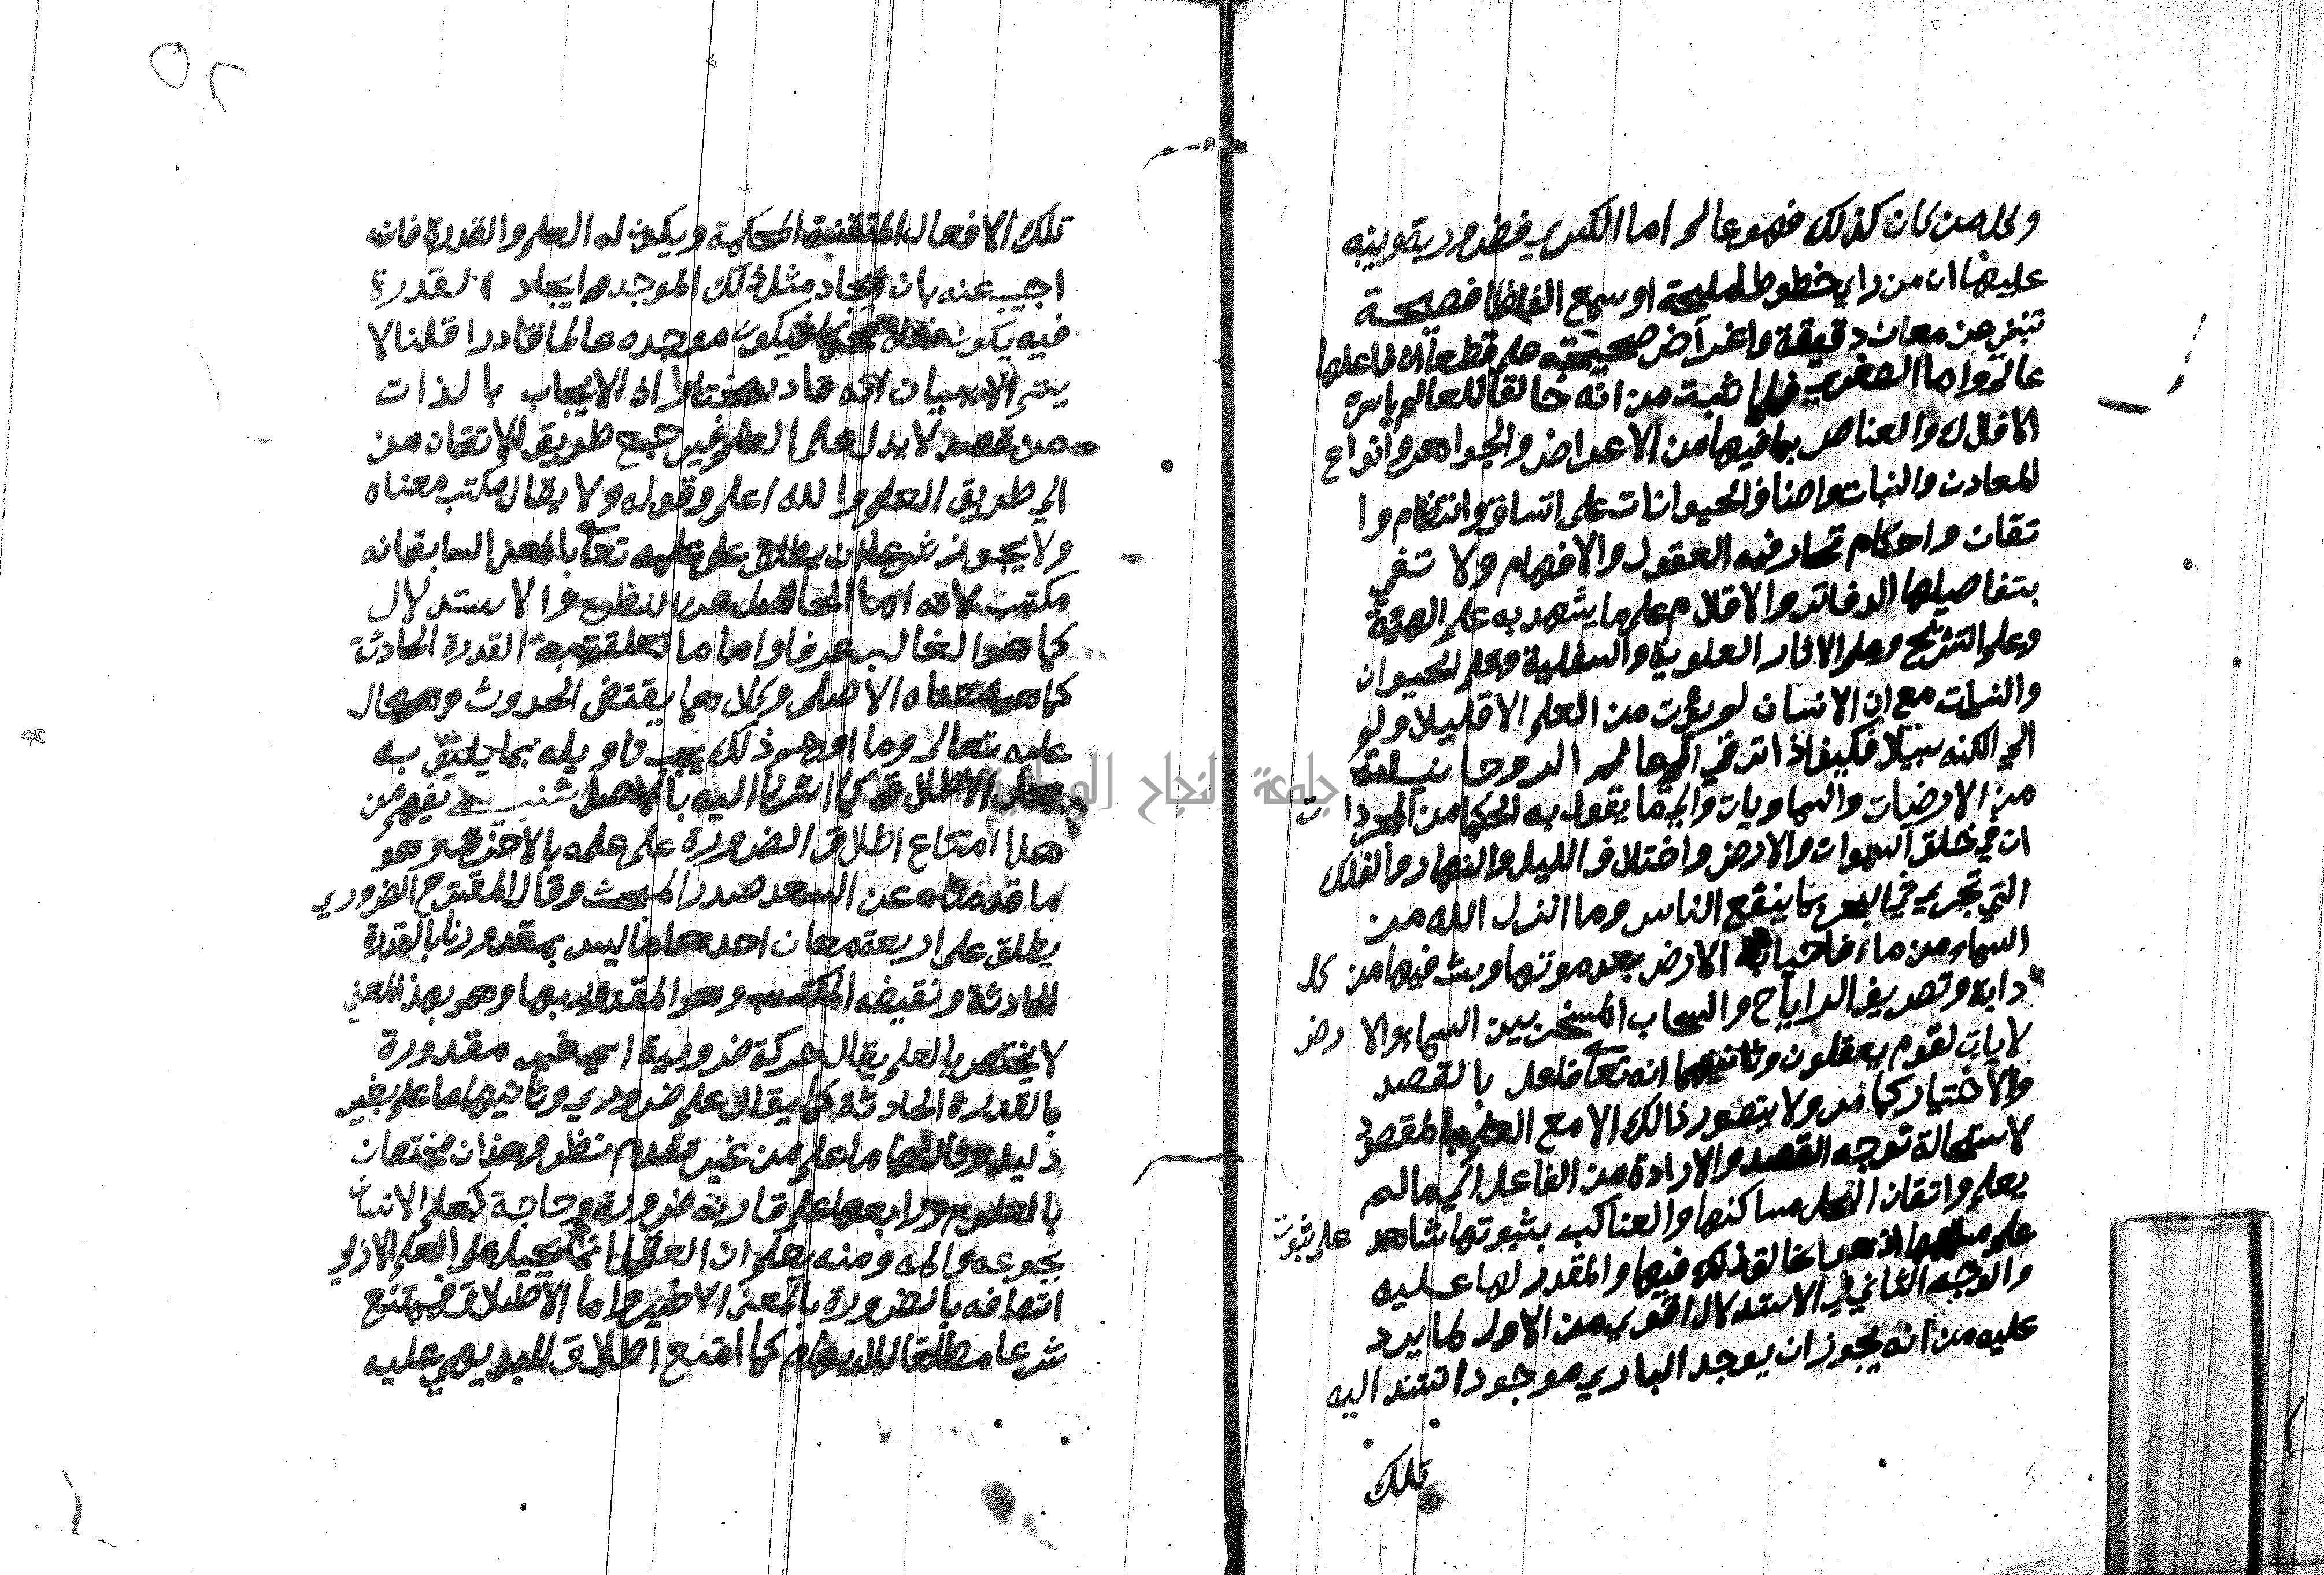 وكل من كان كذلك فهو عالم اما الكبري فضرورية وينبه
عليها ان من راي خطوطا مليحة او سمع الفاظا فصيحة
تنبئ عن معان دقيقة واغراض صحيحة علم قطعا ان فاعلها
عالم واما الصغري فلما ثبت من انه خالقا للعالم باسره
الافلاك والعناصر بما فيها من الاعراض والجواهر وانواع
المعادن والنبات واصناف الحيوانات على اتساق وانتظام وا
تقان واحكام تحار فيه العقول والافهام ولا تفي
بتفاصيلها الدفاتر والاقلام على ما يشهد به علم الهيئة
وعلم التشريح وعلم الاثار العلوية والسفلية وعلم الحيوان
والنبات مع ان الانسان لم يؤت من العلم الا قليلا ولو
الي الكنه سبيلا فكيف اذا ترقي الي عالم الروحانيات
من الارضيات والسماويات والي ما يقول به الحكما من المجردات
ان في خلق السموات والارض واختلاف الليل والنهار والفلك
التي تجري في البحر بما ينفع الناس وما انزل الله من
السماء من ماء فاحيا به الارض بعد موتها وبث فيها من كل
دابة وتصريف الرياح والسحاب المسخر بين السماء والارض
لايات لقوم يعقلون وثانيهما انه تعالى فاعل بالقصد
والاختيار كما مر ولا يتصور ذالك الا مع العلم بالمقصود
لاستحالة توجه القصد والارادة من الفاعل الي ما لم
يعلم واتقان النحل مساكنها والعناكب بثبوتها شاهد على ثبوت
علم ملهمها اذ هو خالق ذلك فيها والمقدر لها عليه
والوجه الثاني في الاستدلال اقوي من الاول لما يرد
عليه من انه يجوز ان يوجد الباري موجودا تستند اليه
تلك
٥٢
تلك الافعال المتقنة المحكمة ويكون له العلم والقدرة فان
اجيب عنه بان ايجاد مثل ذلك الموجد وايجاد القدرة
فيه يكون فعلا محكما فيكون موجده عالما قادرا قلنا لا
يتم الا ببيان انه قادر مختار اذ الايجاب بالذات
من قصد لا يدل على العلم فيرجع طريق الاتقان من
الي طريق العلم والله اعلم وقوله ولا يقال مكتسب معناه
ولا يجوز شرعا ان يطلق على علمه تعالى بالمعنى السابق انه
مكتسب لانه اما الحاصل عن النظر والاستدلال
كما هو الغالب عرفا واما ما تعلقت به القدرة الحادثة
كما هو معناه الاصلي وكلاهما يقتضي الحدوث وهو محال
عليه تعالى وما اوهم ذلك يجب تاويله بما يليق به
محل الاطلاق كما اشرنا اليه بالاصل تنبيه يفهم من
هذا امتناع اطلاق الضرورة على علمه بالاخذ وهو
ما قدمناه عن السعد صدر المبحث وقال المقترح الضروري
يطلق على اربعة معان احدها ما ليس بمقدورنا بالقدرة
الحادثة ونقيضه المكتسب وهو المقدور بها وهو بهذا المعني
لا يختص بالعلم يقال حركة ضرورية اي غير مقدورة
بالقدرة الحادثة كما يقال علم ضروري وثانيها ما علم بغير
دليل وثالثها ما علم من غير تقدم نظر وهذان مختصان
بالعلوم ورابعها علم قارنه ضرورة وحاجة كعلم الانسان
بجوعه والمه ومنه يعلم ان العقل انما يحيل على العلم الازلي
اتصافه بالضرورة بالمعنى الاخير واما الاطلاق فيمتنع
شرعا مطلقا للايهام كما امتنع اطلاق البديهي عليه
جامعة النجاح الوطنية